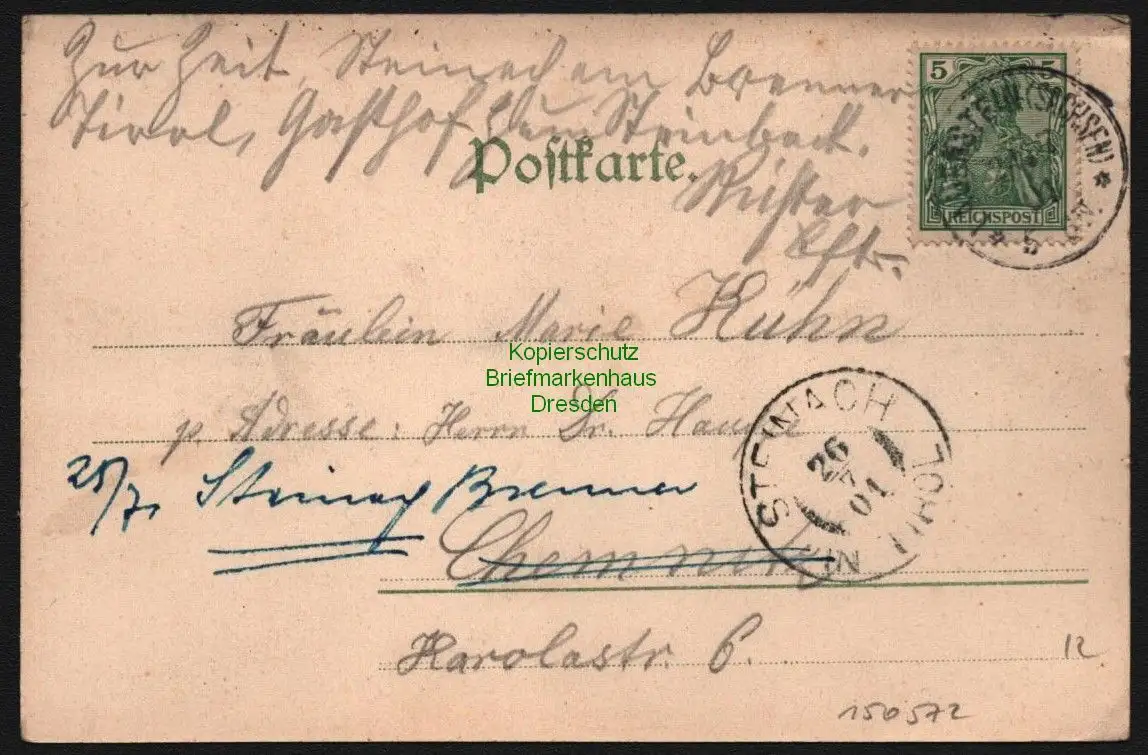 Zur Zeit, Steinach am Brenner
Tirol, Gasthof zum Steinbock.
Postkarte.
5 5
REICHSPOST
(SACHSEN)
Fräulein Marie Kühn
Kopierschutz
Briefmarkenhaus
Dresden
p. Adresse: Herrn Dr.
25/7. Steinach Brenner
Chemnitz
STEINACH IN TIROL
26
7
01
Karolastr. 6.
12
150572